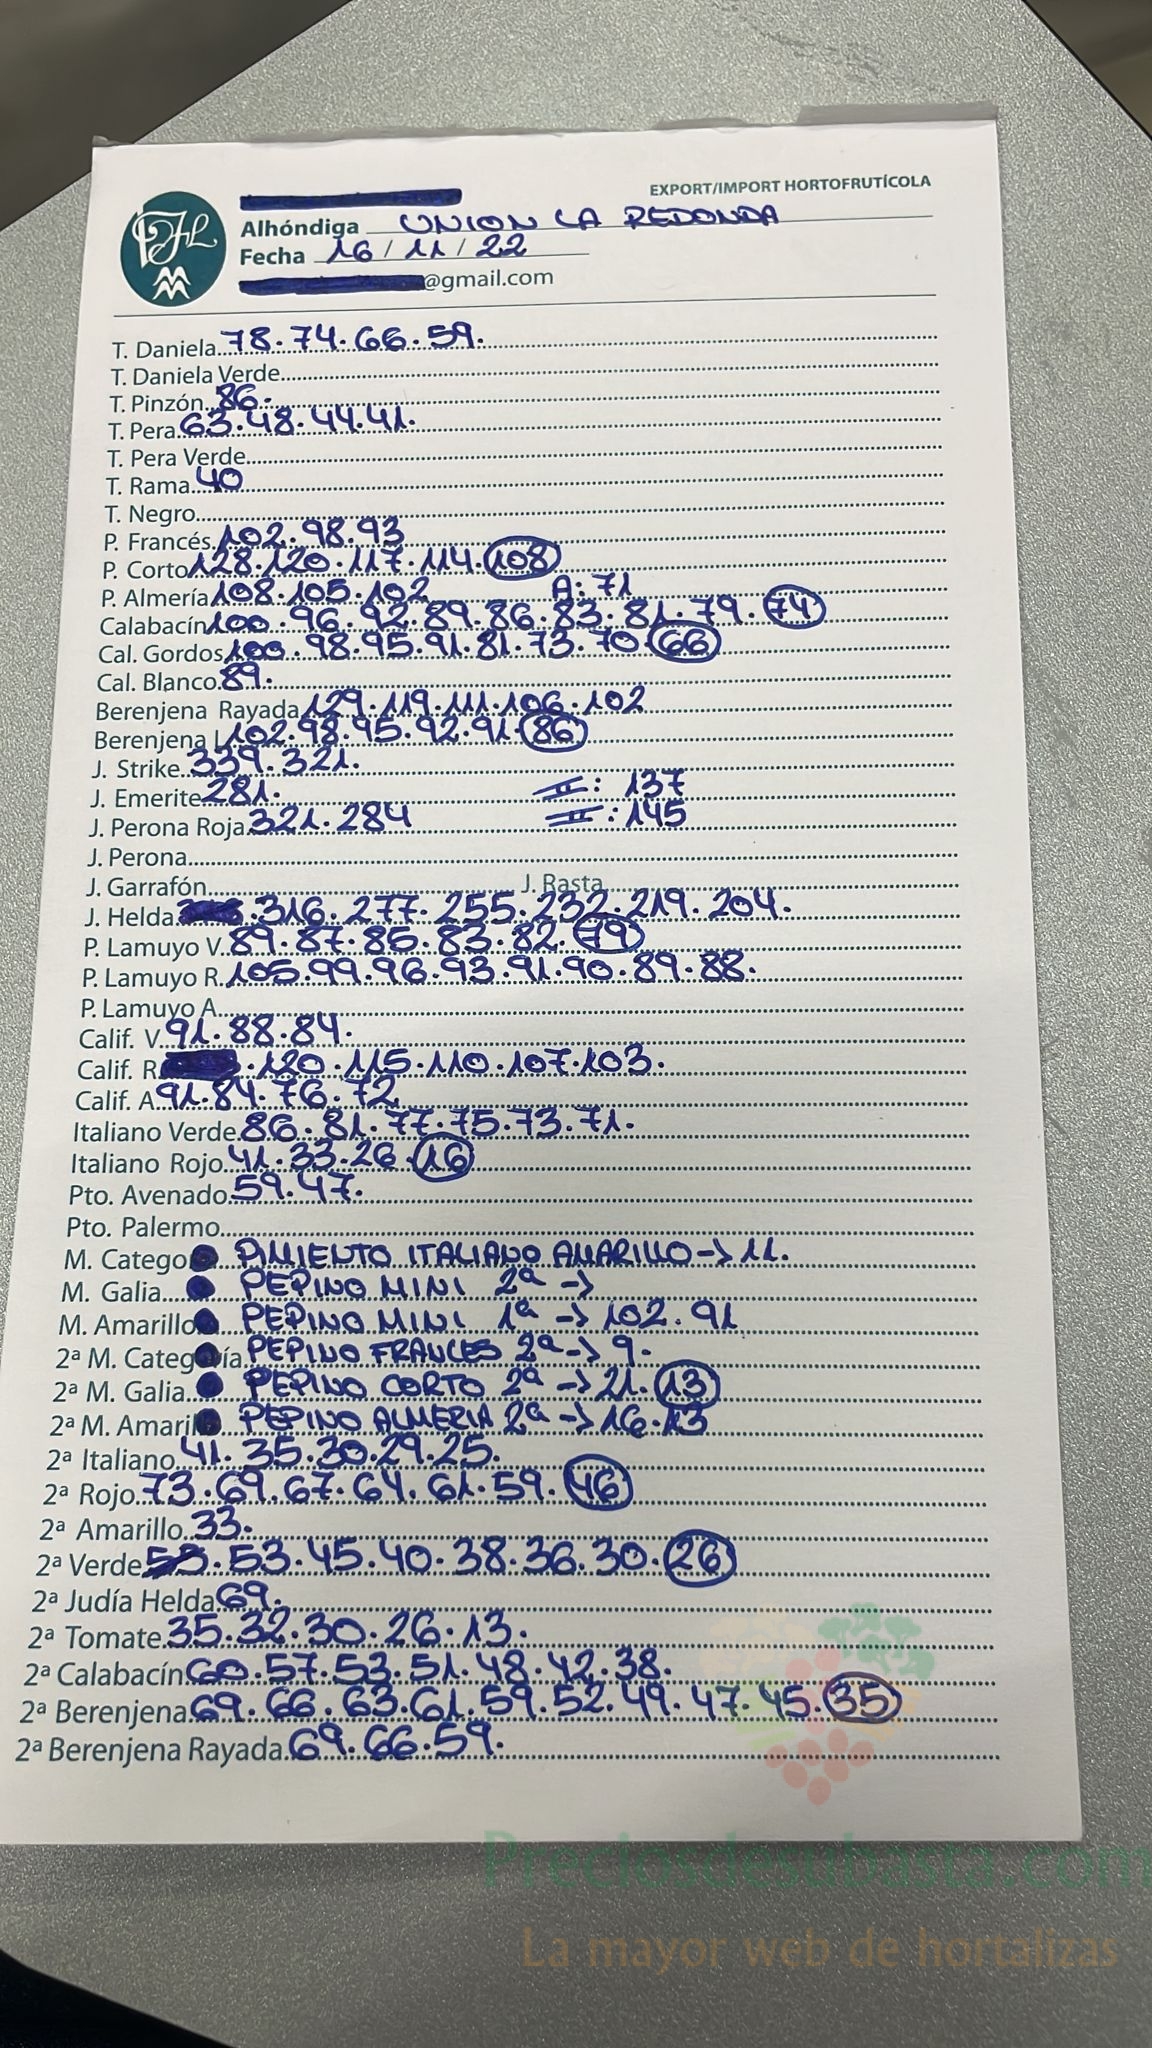 EXPORT/IMPORT HORTOFRUTÍCOLA
Alhóndiga UNION LA REDONDA
Fecha 16 / 11 / 22
@gmail.com
T. Daniela 78. 74. 66. 59.
T. Daniela Verde
T. Pinzón 86.
T. Pera 63. 48. 44. 41.
T. Pera Verde
T. Rama 40
T. Negro
P. Francés 102. 98. 93
P. Corto 128. 120. 117. 114. 108
P. Almería 108. 105. 102 A: 71
Calabacín 100. 96. 92. 89. 86. 83. 81. 79. 74
Cal. Gordos 100. 98. 95. 91. 81. 73. 70. 66
Cal. Blanco 89.
Berenjena Rayada 129. 119. 111. 106. 102
Berenjena L 102. 98. 95. 92. 91. 86
J. Strike 339. 321.
J. Emerite 281. II: 137
J. Perona Roja 321. 284 II: 145
J. Perona
J. Garrafón J. Rasta
J. Helda . 316. 277. 255. 232. 219. 204.
P. Lamuyo V. 89. 87. 85. 83. 82. 79
P. Lamuyo R. 105. 99. 96. 93. 91. 90. 89. 88.
P. Lamuyo A.
Calif. V. 91. 88. 84.
Calif. R. . 120. 115. 110. 107. 103.
Calif. A. 91. 84. 76. 72
Italiano Verde 86. 81. 77. 75. 73. 71.
Italiano Rojo 41. 33. 26. 16
Pto. Avenado 59. 47.
Pto. Palermo
M. Catego PIMIENTO ITALIANO AMARILLO → 11.
M. Galia PEPINO MINI 2ª →
M. Amarillo PEPINO MINI 1ª → 102. 91
2ª M. Categoría PEPINO FRANCES 2ª → 9.
2ª M. Galia PEPINO CORTO 2ª → 21. 13
2ª M. Amaril PEPINO ALMERIA 2ª → 16. 13
2ª Italiano 41. 35. 30. 29. 25.
2ª Rojo 73. 69. 67. 64. 61. 59. 46
2ª Amarillo 33.
2ª Verde . 53. 45. 40. 38. 36. 30. 26
2ª Judía Helda 69.
2ª Tomate 35. 32. 30. 26. 13.
2ª Calabacín 60. 57. 53. 51. 48. 42. 38.
2ª Berenjena 69. 66. 63. 61. 59. 52. 49. 47. 45. 35
2ª Berenjena Rayada 69. 66. 59.
Preciosdesubasta.com
La mayor web de hortalizas